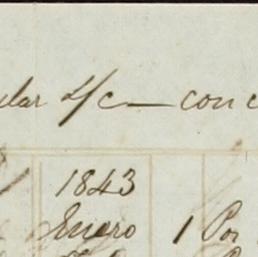 ular S/c — con c
1843
Enero 1 Por